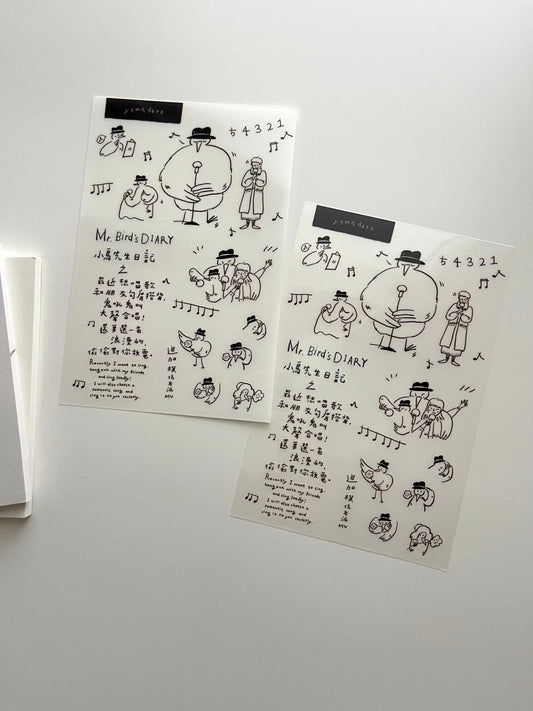 yamadoro
ち4321
Mr. Bird's DIARY
小鳥先生日記
之
最近想唱歌
和朋友勾肩搭背,
鬼吼鬼叫
大聲合唱!
還要選一首
浪漫的,
偷偷對你放電。
Recently I want to sing,
hang out with my friends
and sing loudly!
I will also choose a
romantic song and
sing it to you secretly.
追
加
模
仿
老
派
MV
yamadoro
ち4321
Mr. Bird's DIARY
小鳥先生日記
之
最近想唱歌
和朋友勾肩搭背,
鬼吼鬼叫
大聲合唱!
還要選一首
浪漫的,
偷偷對你放電。
Recently I want to sing,
hang out with my friends
and sing loudly!
I will also choose a
romantic song and
sing it to you secretly.
追
加
模
仿
老
派
MV